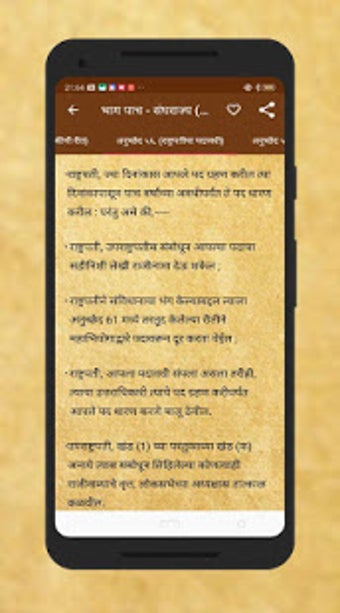 21:54
भाग पाच - संघराज्य (...
अनुच्छेद ५६. (राष्ट्रपतीचा पदावधी)
अनुच्छेद ५
राष्ट्रपती, ज्या दिनांकास आपले पद ग्रहण करील त्या
दिनांकापासून पाच वर्षांच्या अवधीपर्यंत ते पद धारण
करील : परंतु असे की,----
राष्ट्रपती, उपराष्ट्रपतीस संबोधून आपल्या पदाचा
सहीनिशी लेखी राजीनामा देऊ शकेल ;
राष्ट्रपतीने संविधानाचा भंग केल्याबद्दल त्याला
अनुच्छेद 61 मध्ये तरतूद केलेल्या रीतीने
महाभियोगाद्वारे पदावरून दूर करता येईल ;
राष्ट्रपती, आपला पदावधी संपला असला तरीही,
त्याचा उत्तराधिकारी त्याचे पद ग्रहण करीपर्यंत
आपले पद धारण करणे चालू ठेवील.
उपराष्ट्रपती, खंड (1) च्या परंतुकाच्या खंड (क)
अन्वये त्यास संबोधून लिहिलेल्या कोणत्याही
राजीनाम्याचे वृत्त, लोकसभेच्या अध्यक्षास तात्काळ
कळवील.